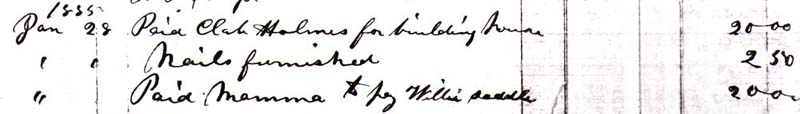 1885
Jan 28 Paid Clab Holmes for building house 20 00
" " Nails furnished 2 50
" Paid Mamma to pay Willie saddle 20 00